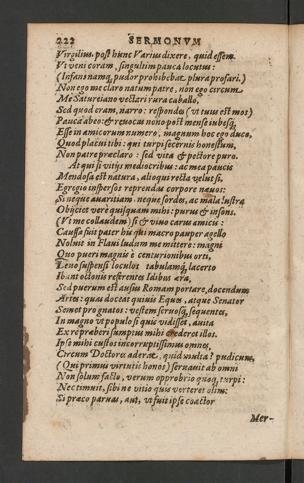 222 SERMONVM
Virgilius. post hunc Varius dixere, quid essem.
Vt veni coram, singultim pauca locutus:
(Infans namq; pudor prohibebat plura profari.)
Non ego me claro natum patre, non ego circum
Me Satureiano vectari rura caballo,
Sed quod eram, narro: respondes (vt tuus est mos)
Pauca: abeo: & reuocas nono post mense iubesq;
Esse in amicorum numero, magnum hoc ego duco,
Quod placui tibi: qui turpi secernis honestum,
Non patre præclaro: sed vita & pectore puro.
Atqui si vitijs mediocribus: ac mea paucis
Mendosa est natura, alioqui recta velut si,
Egregio inspersos reprendas corpore næuos:
Si neque auaritiam, neque sordes, ac mala lustra
Obijciet verè quisquam mihi: purus & insons.
(Vt me collaudem) si & viuo carus amicis:
Caussa fuit pater his qui macro pauper agello
Noluit in Flaui ludum me mittere: magni
Quo pueri magnis è centurionibus orti,
Leuo suspensi loculos tabulamq; lacerto
Ibant octonis referentes Idibus æra,
Sed puerum est ausus Romam portare, docendum
Artes: quas doceat quiuis Eques, atque Senator
Semet prognatos: vestem seruosq; sequentes,
In magno vt populo si quis vidisset, auita
Ex re præberi sumptus mihi crederet illos.
Ipse mihi custos incorruptissimus omnes,
Circum Doctores aderat, quid multa? pudicum,
(Qui primus virtutis honos) seruauit ab omni
Non solum facto, verum opprobrio quoq; turpi:
Nec timuit, sibi ne vitio quis verteret olim:
Si præco paruas, aut, vt fuit ipse coactor
Mer-